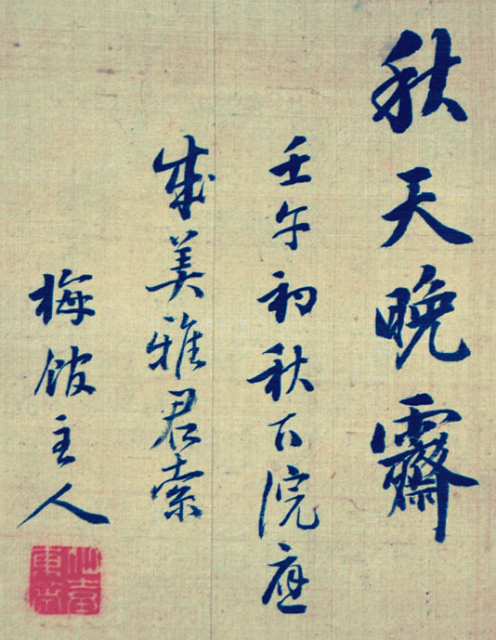 秋天晚霽
壬午初秋下院庭
成美雅君索
梅館主人